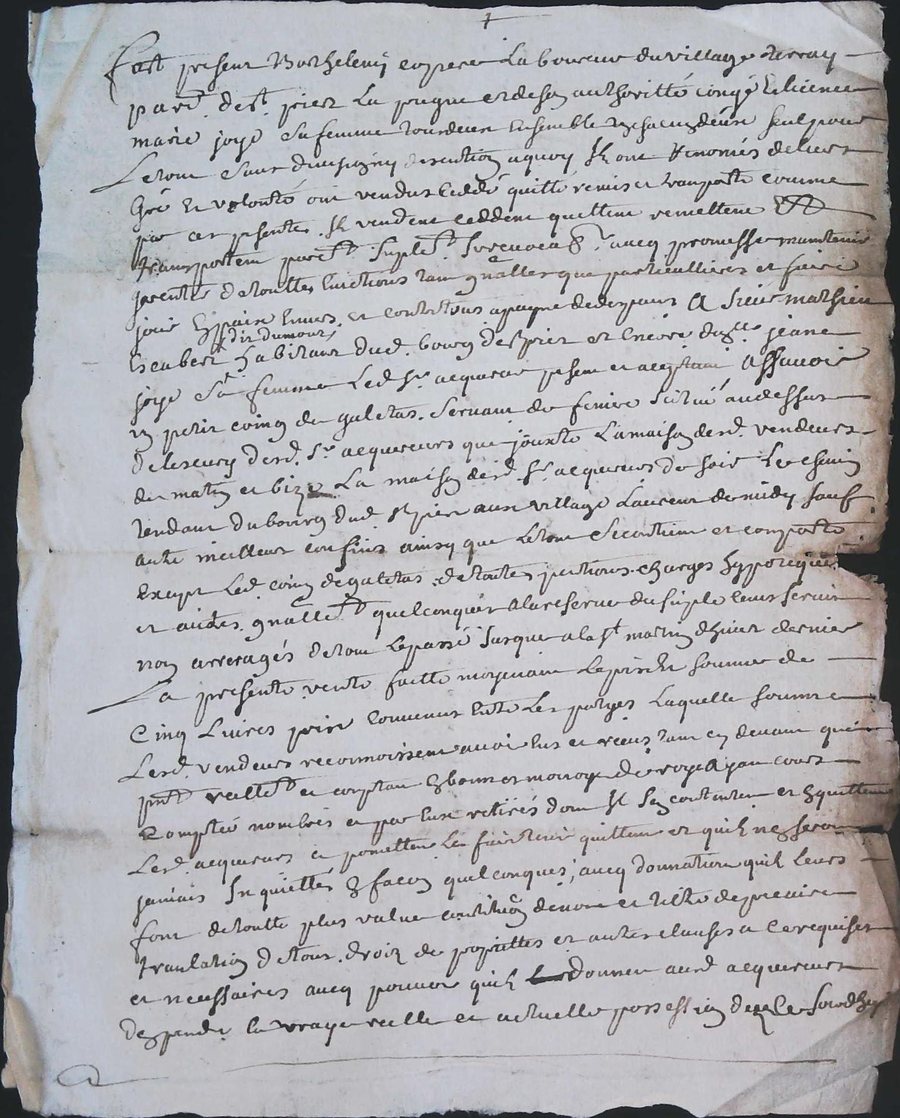 fust present Barthelemy laboureur du village
par. de st. priez La pnt et de son authoritté congé & licence
marie joye sa femme tous deux ensemble un chacun deux seul pour
Le tout sans division discution a quoy Ils ont renoncés de leurs
Gré Et volonté ont vendus ceddé quitté remis et transporté comme
par ces psentes Ils vendent ceddent quittent remettent
transportent purt. simplet. avecq promesse maintenir
garentir de touttes Evictions tant gnalles que particullieres et faire
jouir Envers et contre tous a payne de despans A sieur mathieu
dit dumour
habitant dud. bourg de st priez et encore jeane
joye sa femme Led. Sr. acquereur psent et acceptant Assavoir
un petit coing de galetas servant de feniere scitué au dessus
de lescury desd. Srs. acquereurs que jouxte La maison desd. vendeurs
de matin et bize La maison desd. Srs. acquereurs de soir Le chemin
tendant du bourg dud. st priez aux village de midy sauf
autre meilleur confins ainsy que Le tout se contient et comporte
Exept Led. coing de galetas de toutes pentions charges hypoteques
et autres gnallet. quelconques a la reserve du simple leurs servis
non arreragés de tout Le passé jusque a la st martin dhiver dernier
La presente vente faitte moyenant Le prix Et somme de
Cinq Livres prix Convenus Entre Les partyes Laquelle somme
Lesd. vendeurs reconnoissent avoir Eus et reçus tant cy devant que
pnt reellet. et comptant En bonne monoye de roy ayant cours
Comptés nombrés et par Eux retirés dont Ils sen contentent et Equittent
Lesd. acquereurs et promettent Les faire tenir quittent et quils ne seront
jamais Inquiettés En façon quelconques, avecq donnation quils Leurs
font de toutte plus value constitution de nom et tiltre de precaire
translation de tous droix de proprietté et autres clauses a ce requises
et necessaires avecq pouvoir quils donnent ausd. acquereurs
de prendre la vraye reelle et actuelle possession